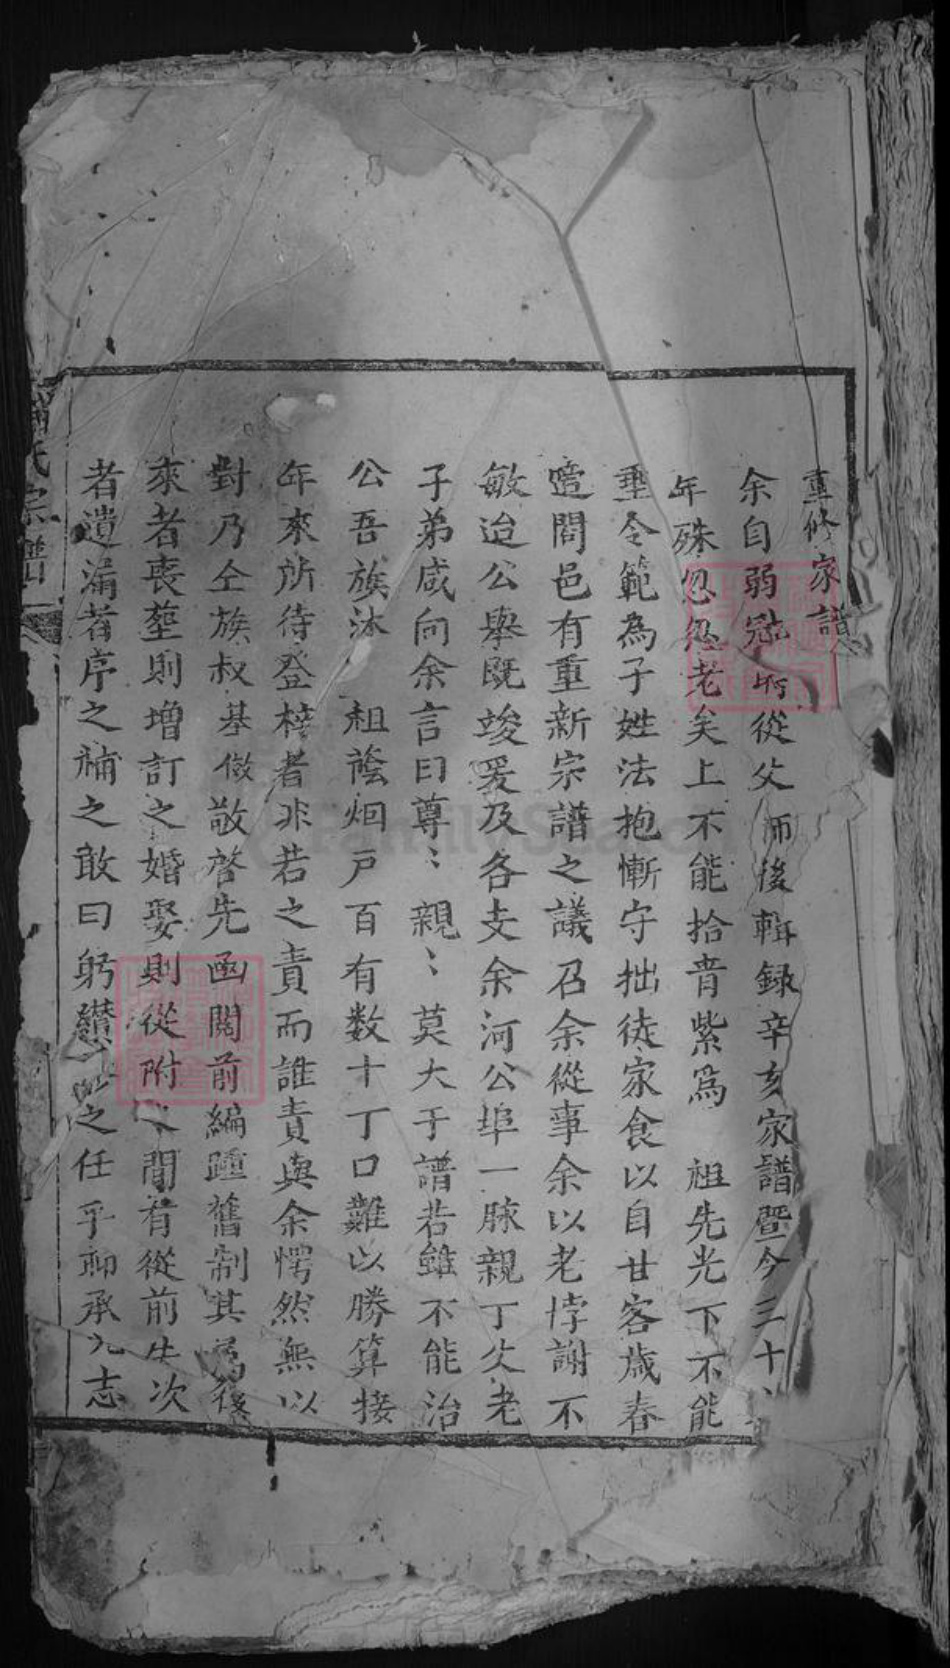 重修家譜
余自弱冠時從父師後輯録辛亥家譜暨今三十
年殊忽忽老矣上不能拾青紫為 祖先光下不能
垂令範為子姓法抱慚守拙徒家食以自甘客歲春
噎閤邑有重新宗譜之議召余從事余以老悖謝不
敏迨公舉既竣爰及各支余河公埠一脉親丁父老
子弟咸向余言曰尊〻親〻莫大于譜若雖不能治
公吾族沐 祖蔭烟戸百有数十丁口難以勝算接
年來所待登梓者非若之責而誰責與余愕然無以
對乃仝族叔基傲敬啓先函閲前編踵舊制其為後
來者喪塟則增訂之婚娶則從附之間有從前失次
者遺漏者序之補之敢曰躬纉之任乎聊承先志
氏宗譜
FamilySearch